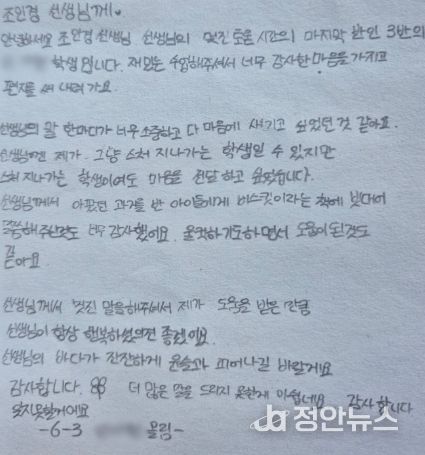 조인경 선생님께
안녕하세요 조인경 선생님 선생님의 멋진 도움 시간의 마지막 반인 3반의
학생 입니다. 재밌는 수업해주셔서 너무 감사한 마음을 가지고
편지를 써 내려 가요.
선생님의 말 한마디가 너무 소중하고 다 마음에 새기고 싶었던 것 같아요.
선생님껜 제가 그냥 스쳐 지나가는 학생일 수 있지만
스쳐 지나가는 학생이여도 마음을 전달 하고 싶었습니다.
선생님께서 아팠던 과거를 반 아이들에게 비스킷이라는 책에 빗대어
말씀해주신것도 너무 감사했어요. 울컥하기도하면서 도움이 된것도
같아요
선생님께서 멋진 말을해주셔서 제가 도움을 받은 만큼
선생님이 항상 행복하셨으면 좋겠어요.
선생님의 바다가 잔잔하게 윤슬과 피어나길 바랄게요
감사합니다. 더 많은 말을 드리지 못한게 아쉽네요 감사합니다
잊지못할거에요
-6-3 올림-
정안뉴스